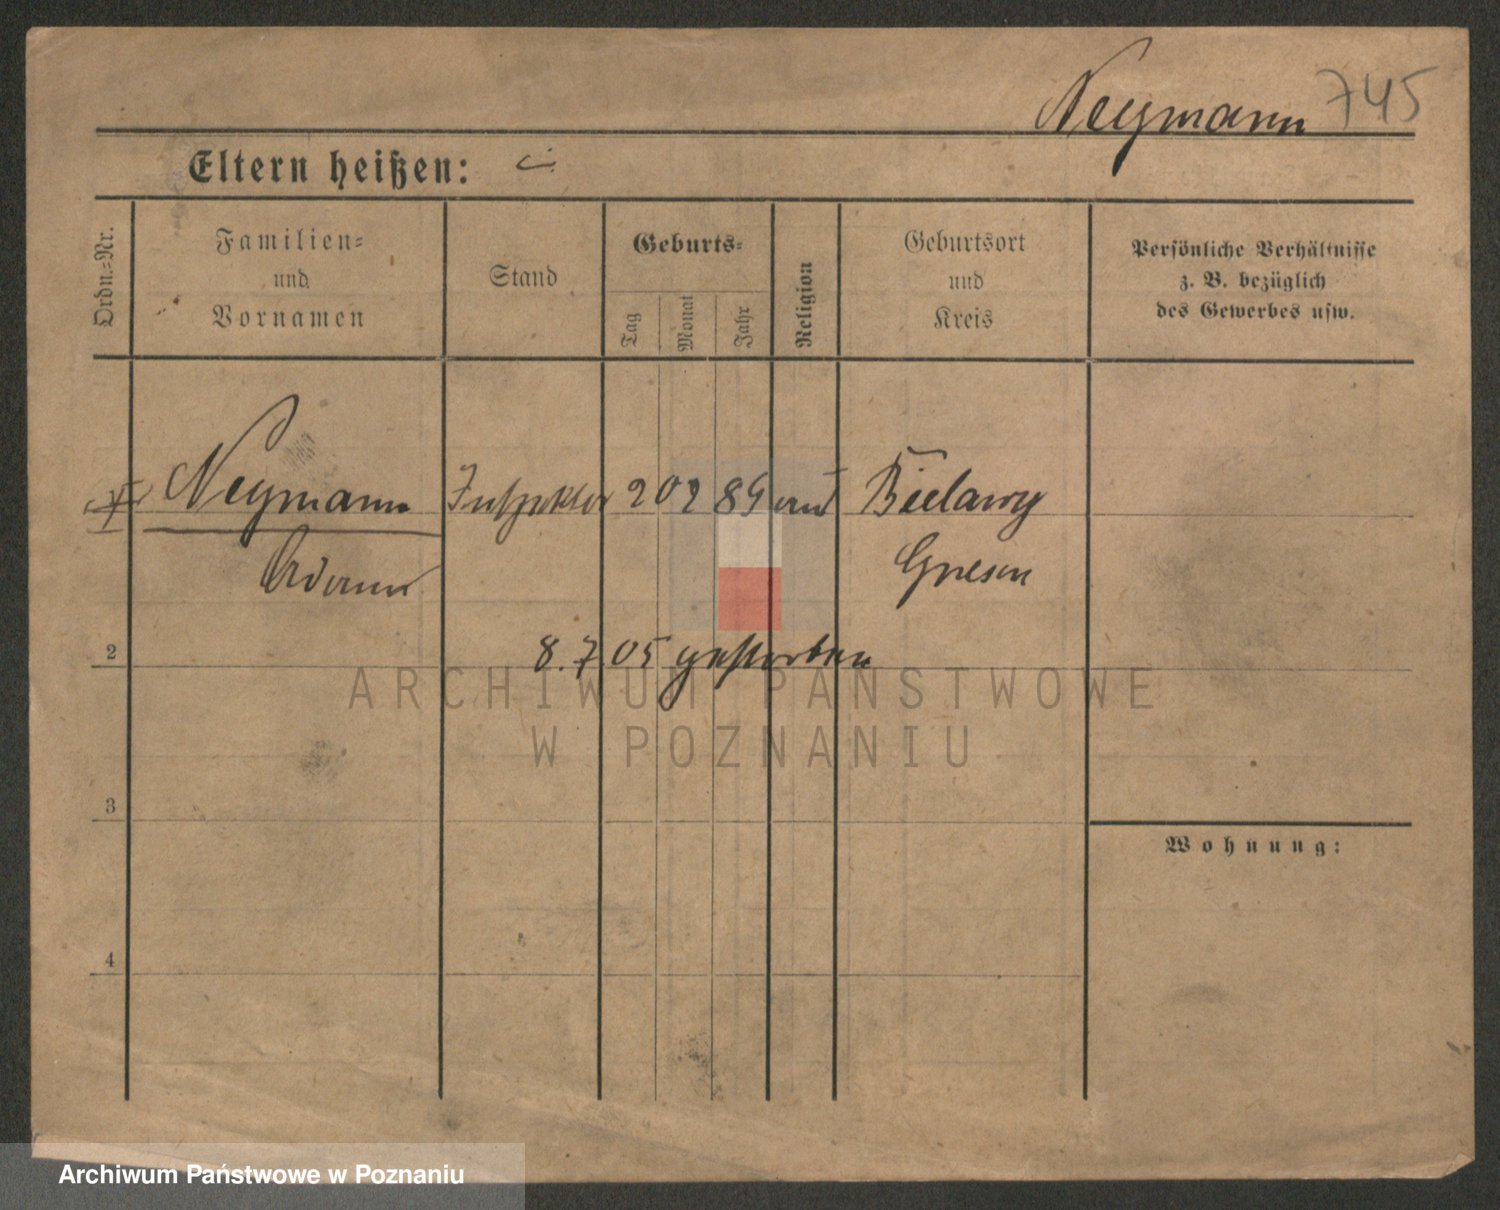 Neymann 745
Eltern heißen:
Ordn.-Nr.
Familien-
und
Vornamen
Stand
Geburts-
Tag
Monat
Jahr
Religion
Geburtsort
und
Kreis
Persönliche Verhältnisse
z. B. bezüglich
des Gewerbes usw.
Neymann Inspektor 20 2 89 Bielawy
Adam Gnesen
2
8. 7. 05 gestorben
ARCHIWUM PAŃSTWOWE
W POZNANIU
3
Wohnung:
4
Archiwum Państwowe w Poznaniu